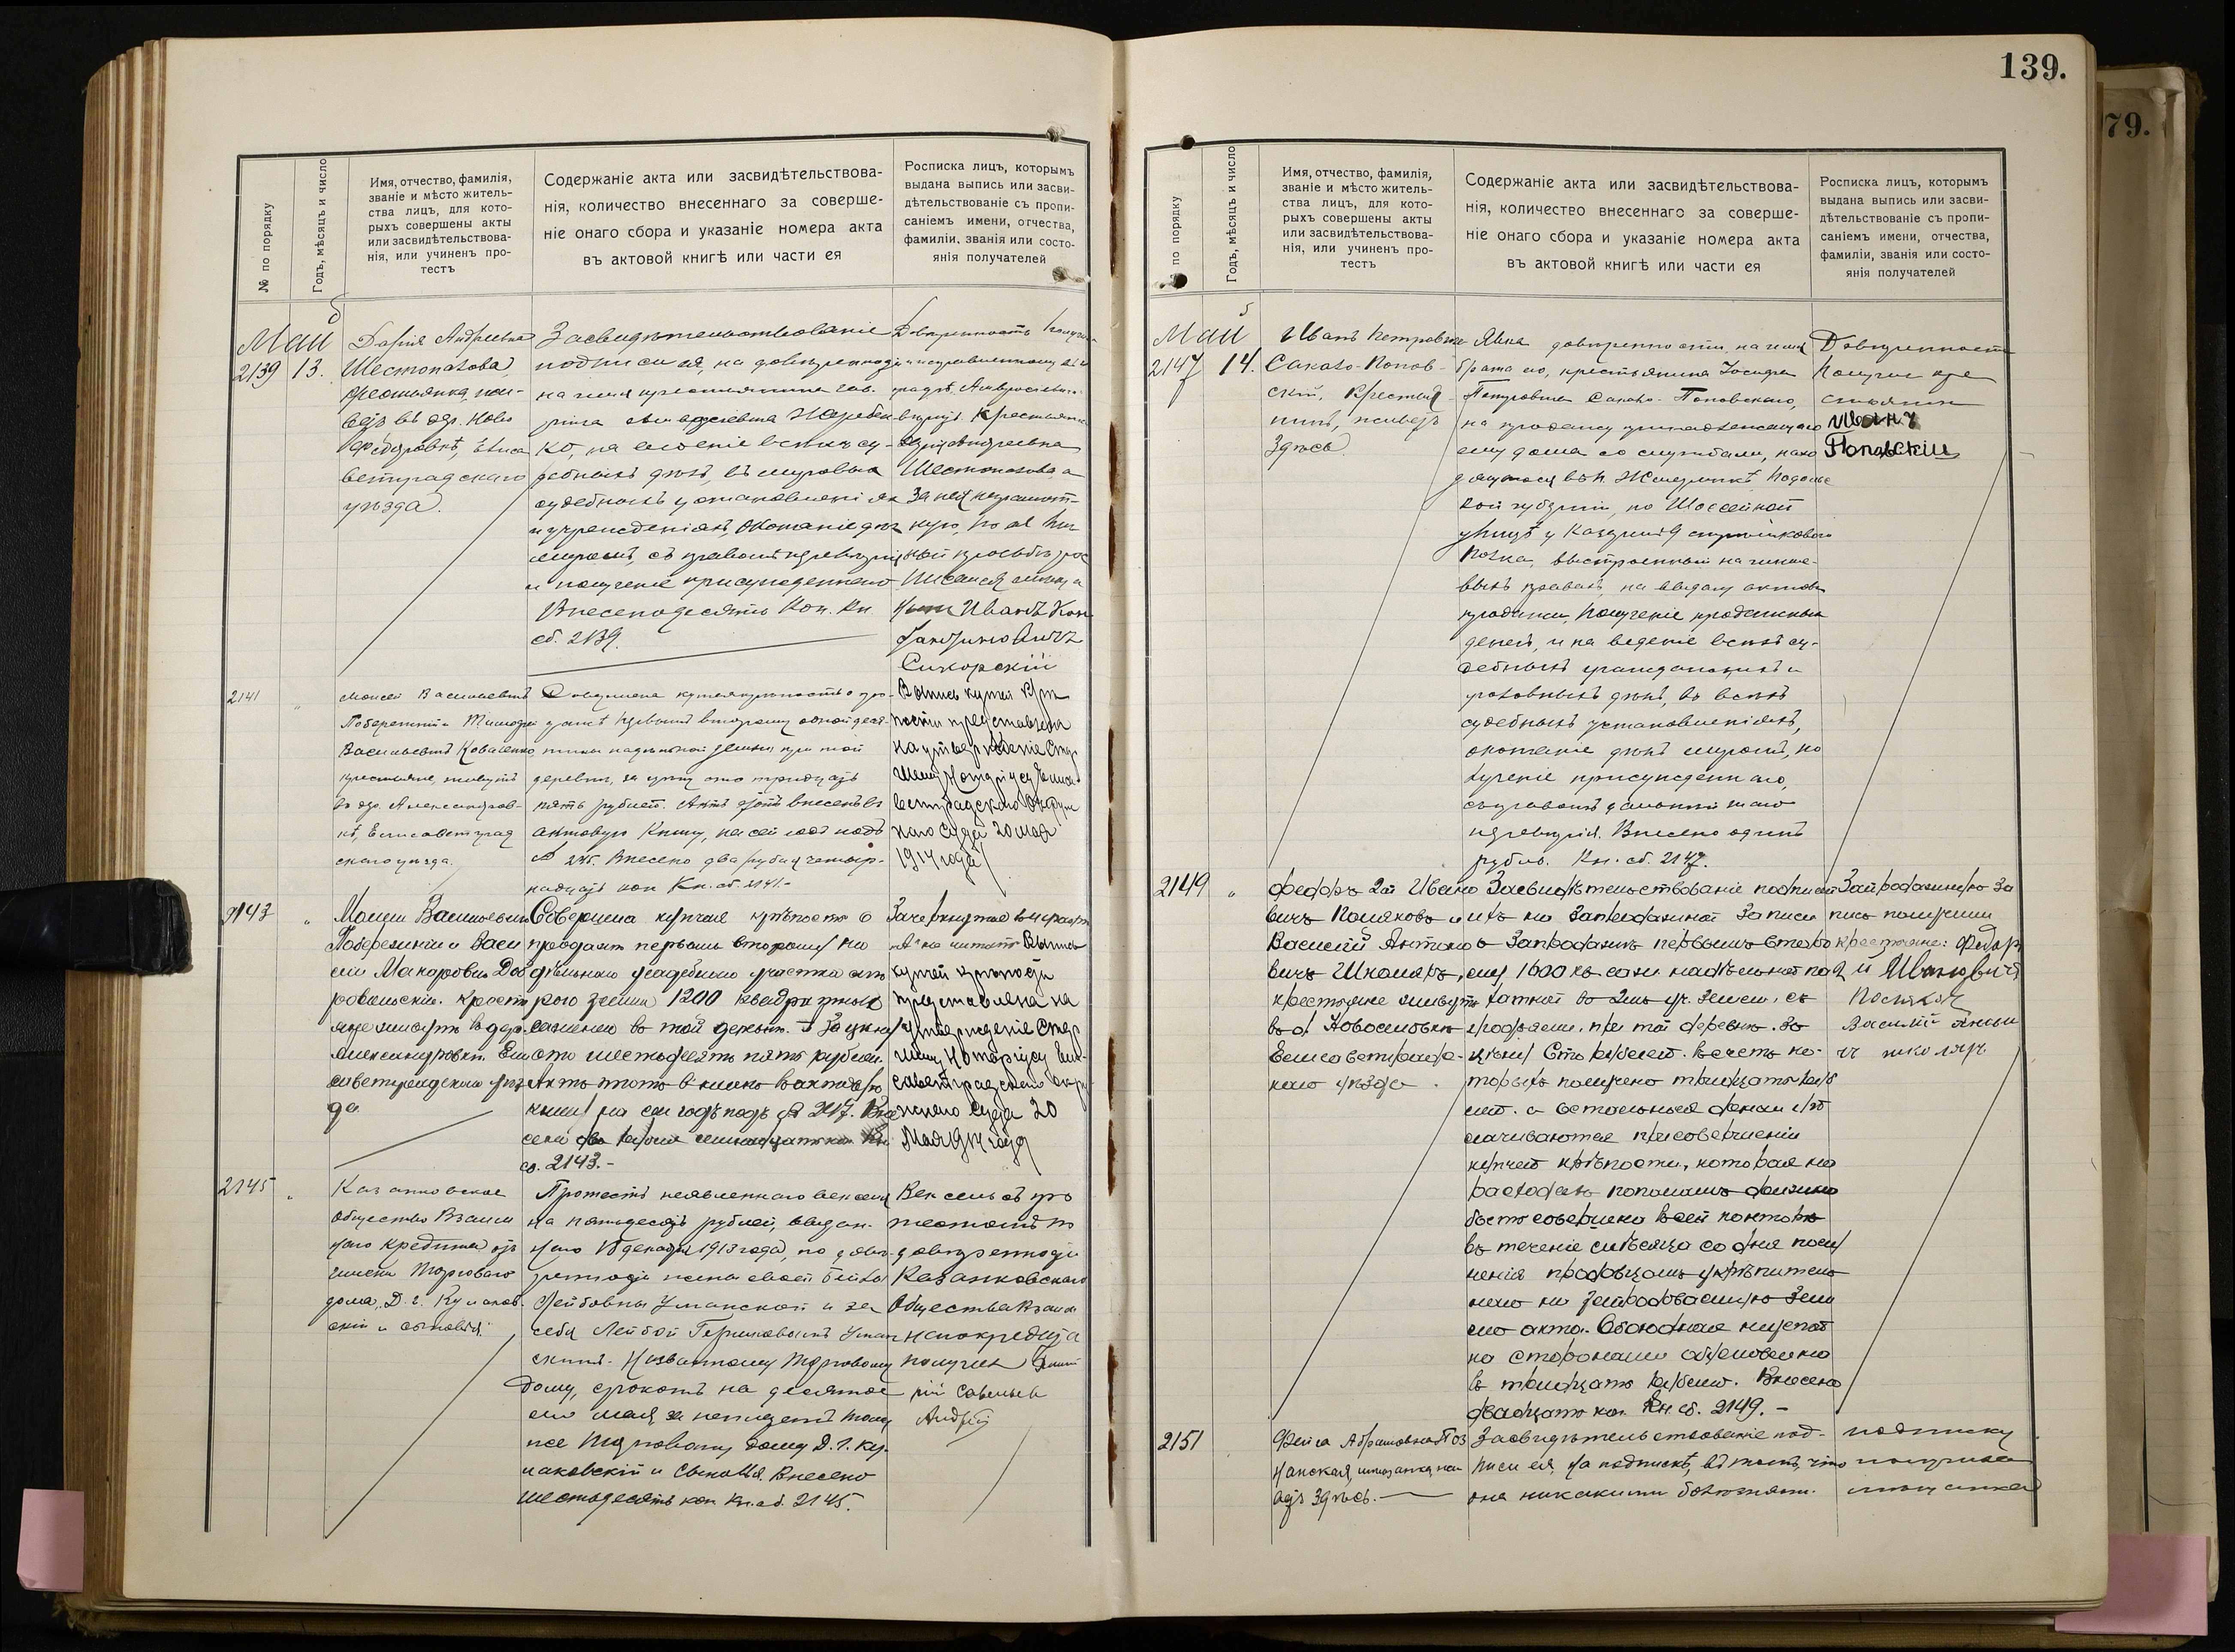 139.
79.
№ по порядку
Годъ, мѣсяцъ и число
Имя, отчество, фамилія,
званіе и мѣсто житель-
ства лицъ, для кото-
рыхъ совершены акты
или засвидѣтельствова-
нія, или учиненъ про-
тестъ
Содержаніе акта или засвидѣтельствова-
нія, количество внесеннаго за соверше-
ніе онаго сбора и указаніе номера акта
въ актовой книгѣ или части ея
Росписка лицъ, которымъ
выдана выпись или засви-
дѣтельствованіе съ пропи-
саніемъ имени, отчества,
фамиліи, званія или состо-
янія получателей
Маи
2139 13.
Дарія Андреевна
Шестопалова
крестьянка, жи-
ветъ въ дер. Ново
Федоровкѣ, Елиса
ветградскаго
уѣзда.
Засвидѣтельствованіе
подписи ея, на довѣренности
на имя крестьянина
ко, на веденіе всѣхъ су-
дебныхъ дѣлъ, въ мировыхъ
судебныхъ установленіях
и учрежденіяхъ, окончаніе дѣлъ
миромъ, съ правомъ передовѣрія
и полученіе присужденнаго
Внесено десять коп. Кн.
сб. 2139.
Довѣренность получи
крестьянка
Дарія Андреевна
Шестопалова, а
за нея неграмот-
ную, по ея лич
ной просьбѣ рос
писался
Иванъ Кон
стантиновичъ
Сикорскій
2141
Моисей Васильевичъ
Побережній и Тимофей
Васильевичъ Коваленко,
крестьяне, живутъ
въ дер. Александров-
кѣ, Елисаветград
скаго уѣзда.
Совершена купчая крѣпость о про-
дажѣ первымъ второму одной деся-
тины надѣльной земли при той
деревнѣ, за цѣну сто тридцать
пять рублей. Актъ этотъ внесенъ въ
актовую книгу, на сей годъ подъ
№ 245. Внесено два рубля четыр-
надцать коп. Кн. сб. 2141.-
Выпись купчей крѣ
пости представлена
на утвержденіе Стар
шему Нотаріусу Елиса
ветградскаго Окруж
наго Суда 20 мая
1914 года
2143
Моисей Васильевичъ
Побережній и Васи
лій Макаровичъ Доб
ровольскій. крестья
яне живутъ въ дер.
Александровкѣ Ели
саветградскаго уѣз
да.
Совершена купчая крѣпость о
продажѣ первымъ второму на
дѣльнаго усадебнаго участка
рого земли 1200 квадратных
саженей въ той деревнѣ. За цѣну
сто шестьдесятъ пять рублей.
Актъ этотъ внесенъ въ актовую
книгу на сей годъ подъ № 247. Вне
сено два рубля семнадцать коп. Кн.
сб. 2143.-
Зачеркнутое
не читать Выпись
купчей крѣпости
представлена на
утвержденіе Стар
шему Нотаріусу Ели-
саветградскаго Окру
жнаго Суда 20
Мая 1914 года
2145
Казанковское
Общество Взаим
наго Кредита
Торговаго
дома Д. г. Кулаков-
скій и сыновья.
Протестъ неявленнаго векселя
на пятьдесятъ рублей, выдан-
наго 15 декабря 1913 года, по довѣ-
ренности жены своей Бейлы
Лейбовны Уманской и за
себя Лейбой Гершковымъ Уман
скимъ. Названному Торговому
Дому, срокомъ на десятое
его мая за неплатежъ тому
же Торговому дому Д. г. Ку-
лаковскій и Сыновья. Внесено
шестьдесятъ коп. Кн. сб. 2145.
Вексель съ про
тестомъ по
довѣренности
Казанковскаго
Общества Взаим
наго кредита
получилъ Дмит
рій Савельев
Андрей
№ по порядку
Годъ, мѣсяцъ и число
Имя, отчество, фамилія,
званіе и мѣсто житель-
ства лицъ, для кото-
рыхъ совершены акты
или засвидѣтельствова-
нія, или учиненъ про-
тестъ
Содержаніе акта или засвидѣтельствова-
нія, количество внесеннаго за соверше-
ніе онаго сбора и указаніе номера акта
въ актовой книгѣ или части ея
Росписка лицъ, которымъ
выдана выпись или засви-
дѣтельствованіе съ пропи-
саніемъ имени, отчества,
фамиліи, званія или состо-
янія получателей
Маи
2147 14.
Иванъ Петровичъ
Сакало-Попов-
скій, крестья-
нинъ, живетъ
здѣсь.
Явка довѣренности, на имя
брата его, крестьянина Іосифа
Петровича Сакало-Поповскаго,
на продажу принадлежащаго
ему дома со службами, нахо
дящагося въ м. Жмеринкѣ Подоль
кой губерніи, по Шоссейной
улицѣ у казармъ 9 стрѣлковаго
полка, выстроенный на чинше-
выхъ правахъ, на выдачу актовъ
продажи, полученіе продажныхъ
денегъ, и на веденіе всѣхъ су-
дебныхъ гражданскихъ и
уголовныхъ дѣлъ, во всѣхъ
судебныхъ установленіяхъ,
окончаніе дѣлъ миромъ, по
лученіе присужденнаго,
съ правомъ
передовѣрія. Внесено одинъ
рубль. Кн. сб. 2147.
Довѣренность
Получил кре
стьянин
Иванъ
Поповскій
2149
Федоръ 2й Ивано
вичъ Поляковъ и
Василій Антоно
вичъ Школяръ,
крестьяне живутъ
въ д. Новоселовкѣ
Елисаветград-
скаго уѣзда.
Засвидѣтельствованіе подписей
ихъ на запродажной записи
о запродажѣ первымъ второ
му 1600 кв. саж. надѣльной
земли, съ
при той деревнѣ. За
цѣну Сто рублей. въ счетъ ко-
торыхъ получено тридцать руб
лей. а остальныя деньги упл
ачиваются при совершеніи
купчей крѣпости, которая на
расходахъ пополамъ должна
быть совершена въ сей конторѣ
въ теченіе мѣсяца со дня полу
ченія продавцомъ укрѣпитель
наго на запродаваемую зем
лю акта. Обоюдная неустой
ка сторонами обусловлена
въ тридцать рублей. Внесено
двадцать коп. Кн. сб. 2149. -
Запродажную за
пись получили
крестьяне: Федор
2й Иванович
Поляков
Василій Антон
ич школяр.
2151
Фейга Абрамовна Поз
нанская, мѣщанка, жи
ветъ здѣсь.
Засвидѣтельствованіе под-
писи ея, на подпискѣ, въ томъ, что
она никакими болѣзнями.
подписку
получила
мѣщанка